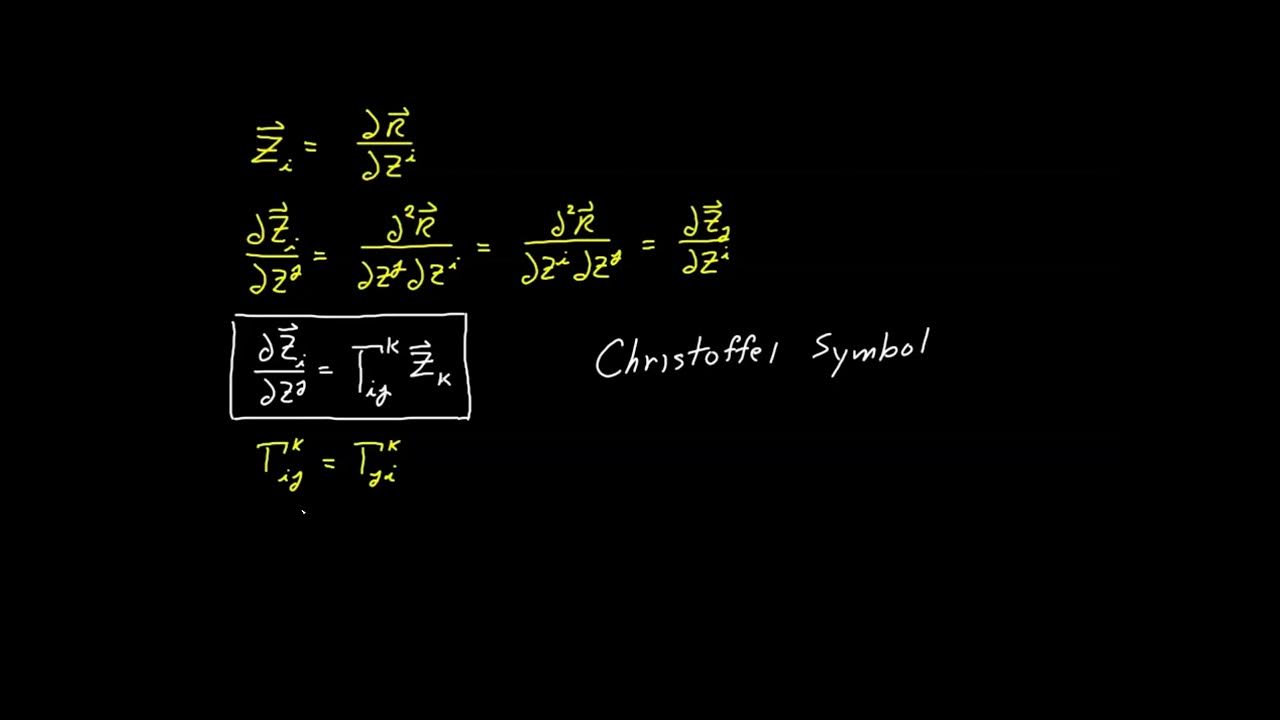 $\vec{Z}_i = \frac{\partial \vec{R}}{\partial Z^i}$
$\frac{\partial \vec{Z}_i}{\partial Z^j} = \frac{\partial^2 \vec{R}}{\partial Z^j \partial Z^i} = \frac{\partial^2 \vec{R}}{\partial Z^i \partial Z^j} = \frac{\partial \vec{Z}_j}{\partial Z^i}$
$\frac{\partial \vec{Z}_i}{\partial Z^j} = \Gamma^k_{ij} \vec{Z}_k$ Christoffel Symbol
$\Gamma^k_{ij} = \Gamma^k_{ji}$